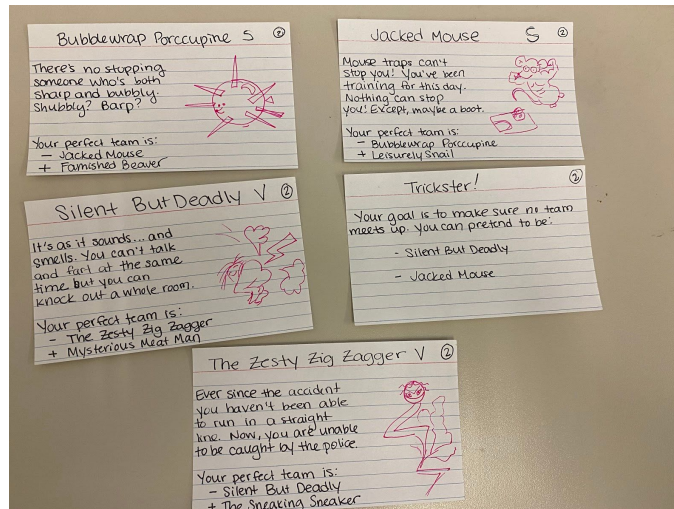 Bubblewrap Porccupine S ②
There's no stopping
someone who's both
sharp and bubbly.
Shubbly? Barp?
Your perfect team is:
- Jacked Mouse
+ Famished Beaver
Jacked Mouse S ②
Mouse traps can't
stop you! You've been
training for this day.
Nothing can stop
you! Except, maybe a boot.
Your perfect team is:
- Bubblewrap Porccupine
+ Leisurely Snail
Silent But Deadly V ②
It's as it sounds... and
smells. You can't talk
and fart at the same
time but you can
knock out a whole room.
Your perfect team is:
- The Zesty Zig Zagger
+ Mysterious Meat Man
Trickster! ②
Your goal is to make sure no team
meets up. You can pretend to be:
- Silent But Deadly
- Jacked Mouse
The Zesty Zig Zagger V ②
Ever since the accident
you haven't been able
to run in a straight
line. Now, you are unable
to be caught by the police.
Your perfect team is:
- Silent But Deadly
+ The Sneaking Sneaker